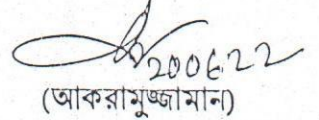 20.06.22
(আকরামুজ্জামান)